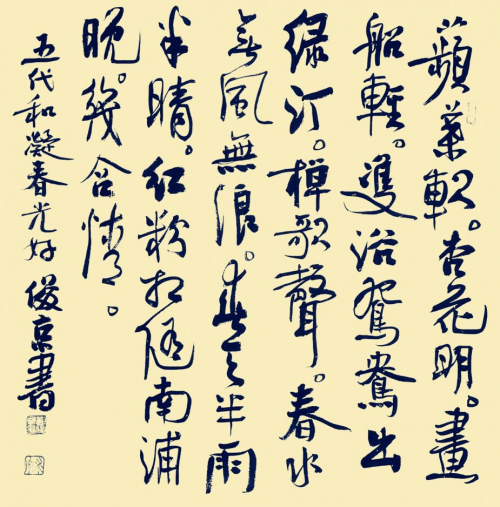 蘋葉軟。杏花明。畫
船輕。雙浴鴛鴦出
绿汀。棹歌聲。春水
無風無浪。春天半雨
半晴。红粉相随南浦
晚。幾含情。
五代和凝春光好 俊京書